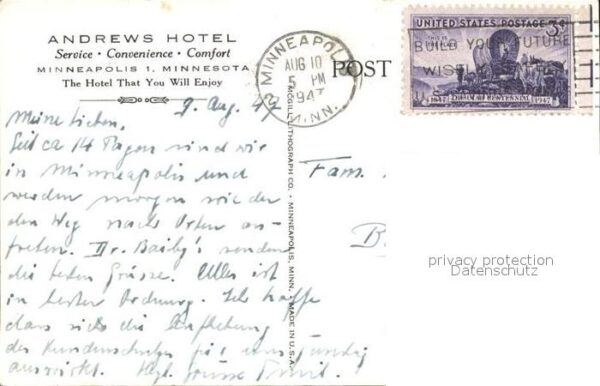 ANDREWS HOTEL
Service · Convenience · Comfort
MINNEAPOLIS 1, MINNESOTA
The Hotel That You Will Enjoy
9. Aug. 47
Meine Lieben,
Seit ca 14 Tagen sind wir
in Minneapolis und
werden morgen wieder
den Weg nach Osten an-
treten. Dr. Baily's senden
die besten Grüsse. Alles ist
in bester Ordnung. Ich hoffe
dass sich die
des Kundenschutzes für
auswirkt. Hzl. Grüsse
MCGILL LITHOGRAPH CO. · MINNEAPOLIS, MINN. · MADE IN U.S.A.
MINNEAPOLIS
AUG 10
5 PM
1947
MINN.
POST
UNITED STATES POSTAGE 3¢
THIS IS THE PLACE
1847 UTAH CENTENNIAL 1947
BUILD YOUR FUTURE
WISELY
U.S.
Fam.
B
privacy protection
Datenschutz